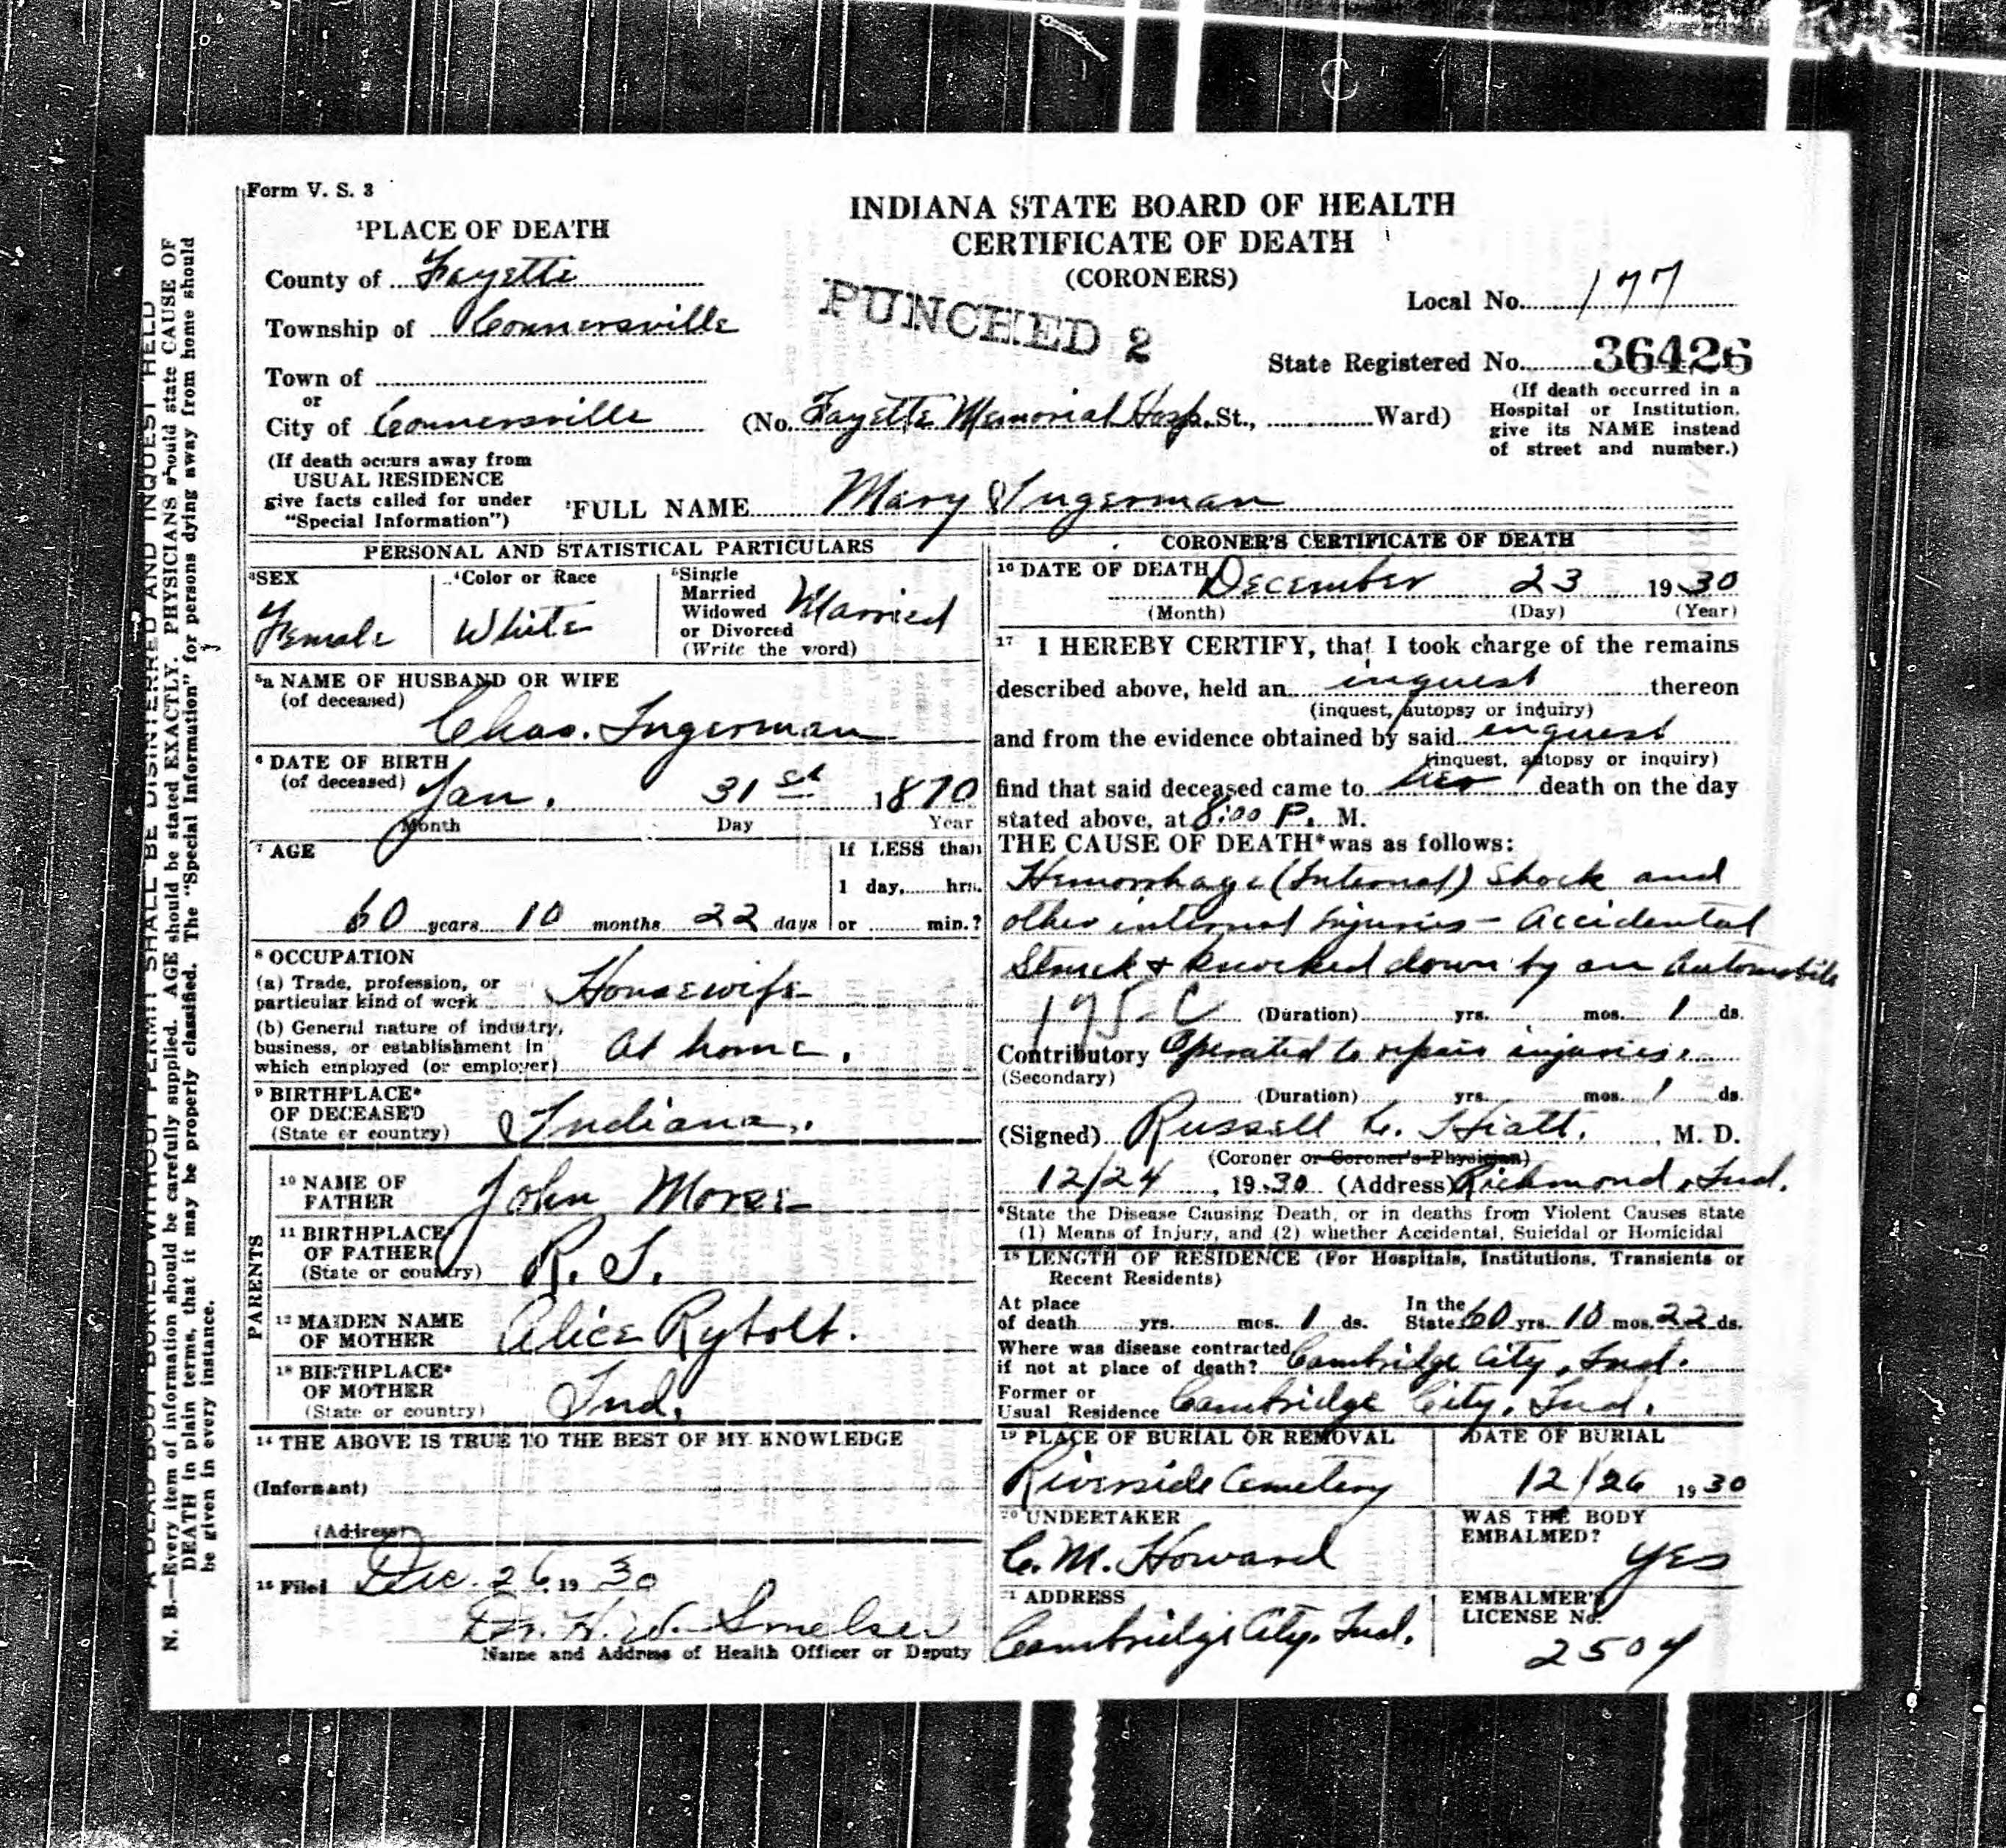 Form V. S. 3
INDIANA STATE BOARD OF HEALTH
CERTIFICATE OF DEATH
(CORONERS)
PUNCHED 2
Local No. 177
State Registered No. 36426
(If death occurred in a
Hospital or Institution,
give its NAME instead
of street and number.)
1 PLACE OF DEATH
County of Fayette
Township of Connersville
Town of
or
City of Connersville (No. Fayette Memorial Hosp. St., Ward)
(If death occurs away from
USUAL RESIDENCE
give facts called for under
"Special Information")
FULL NAME Mary Ingerman
PERSONAL AND STATISTICAL PARTICULARS
3 SEX
Female
4 Color or Race
White
5 Single
Married
Widowed
or Divorced
(Write the word)
Married
5a NAME OF HUSBAND OR WIFE
(of deceased)
Chas. Ingerman
6 DATE OF BIRTH
(of deceased)
Jan. 31st 1870
Month Day Year
7 AGE
If LESS than
1 day, hrs.
60 years 10 months 22 days or min.?
8 OCCUPATION
(a) Trade, profession, or
particular kind of work Housewife
(b) General nature of industry,
business, or establishment in
which employed (or employer) At home.
9 BIRTHPLACE*
OF DECEASED
(State or country) Indiana.
PARENTS
10 NAME OF
FATHER John Morse
11 BIRTHPLACE
OF FATHER
(State or country) R. I.
12 MAIDEN NAME
OF MOTHER Alice Rybolt.
13 BIRTHPLACE*
OF MOTHER
(State or country) Ind.
14 THE ABOVE IS TRUE TO THE BEST OF MY KNOWLEDGE
(Informant)
(Address)
15 Filed Dec. 26, 1930
Dr. H. W. Smelser
Name and Address of Health Officer or Deputy
CORONER'S CERTIFICATE OF DEATH
16 DATE OF DEATH December 23 1930
(Month) (Day) (Year)
17 I HEREBY CERTIFY, that I took charge of the remains
described above, held an inquest thereon
(inquest, autopsy or inquiry)
and from the evidence obtained by said inquest
(inquest, autopsy or inquiry)
find that said deceased came to her death on the day
stated above, at 8:00 P. M.
THE CAUSE OF DEATH* was as follows:
Hemorrhage (Internal) Shock and
other internal injuries - Accidental
Struck & knocked down by an Automobile
(Duration) yrs. mos. 1 ds.
Contributory Operated to repair injuries.
(Secondary)
(Duration) yrs. mos. 1 ds.
(Signed) Russell L. Hiatt. M. D.
(Coroner or Coroner's Physician)
12/24, 1930 (Address) Richmond, Ind.
*State the Disease Causing Death, or in deaths from Violent Causes state
(1) Means of Injury, and (2) whether Accidental, Suicidal or Homicidal
18 LENGTH OF RESIDENCE (For Hospitals, Institutions, Transients or
Recent Residents)
At place
of death yrs. mos. 1 ds. In the State 60 yrs. 10 mos. 22 ds.
Where was disease contracted
if not at place of death? Cambridge City, Ind.
Former or
Usual Residence Cambridge City, Ind.
19 PLACE OF BURIAL OR REMOVAL
Riverside Cemetery
DATE OF BURIAL
12/26 1930
20 UNDERTAKER
C. M. Howard
WAS THE BODY
EMBALMED?
Yes
21 ADDRESS
Cambridge City, Ind.
EMBALMER'S
LICENSE No.
2504
A DEAD BODY BURIED WITHOUT PERMIT SHALL BE DISINTERRED AND INQUEST HELD
N. B.—Every item of information should be carefully supplied. AGE should be stated EXACTLY. PHYSICIANS should state CAUSE OF
DEATH in plain terms, that it may be properly classified. The "Special Information" for persons dying away from home should
be given in every instance.